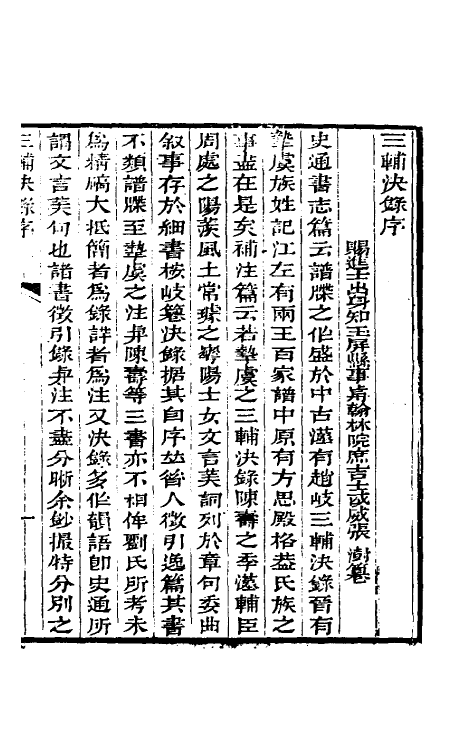 三輔決錄序
賜進士出身知玉屏縣事前翰林院庶吉士武威張澍纂
史通書志篇云譜牒之作盛於中古漢有趙岐三輔決錄晉有
摯虞族姓記江左有兩王百家譜中原有方思殿格葢氏族之
事盡在是矣補注篇云若摯虞之三輔決錄陳壽之季漢輔臣
周處之陽羨風土常璩之華陽士女文言美詞列於章句委曲
叙事存於細書按岐纂決錄据其自序竝晉人徵引逸篇其書
不類譜牒至摯虞之注弆陳壽等三書亦不相侔劉氏所考未
爲精碻大抵簡者爲錄詳者爲注又決錄多作韻語卽史通所
謂文言美句也諸書徵引錄弆注不盡分晰余鈔撮特分別之
三輔決錄序